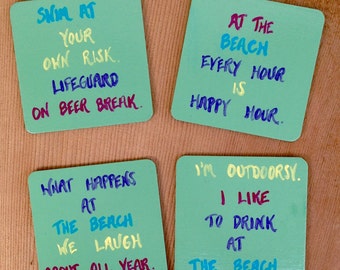 SWIM AT
YOUR
OWN RISK.
LIFEGUARD
ON BEER BREAK.
AT THE
BEACH
EVERY HOUR
IS
HAPPY HOUR.
WHAT HAPPENS
AT
THE BEACH
WE LAUGH
ABOUT ALL YEAR.
I'M OUTDOORSY.
I LIKE
TO DRINK
AT
THE BEACH